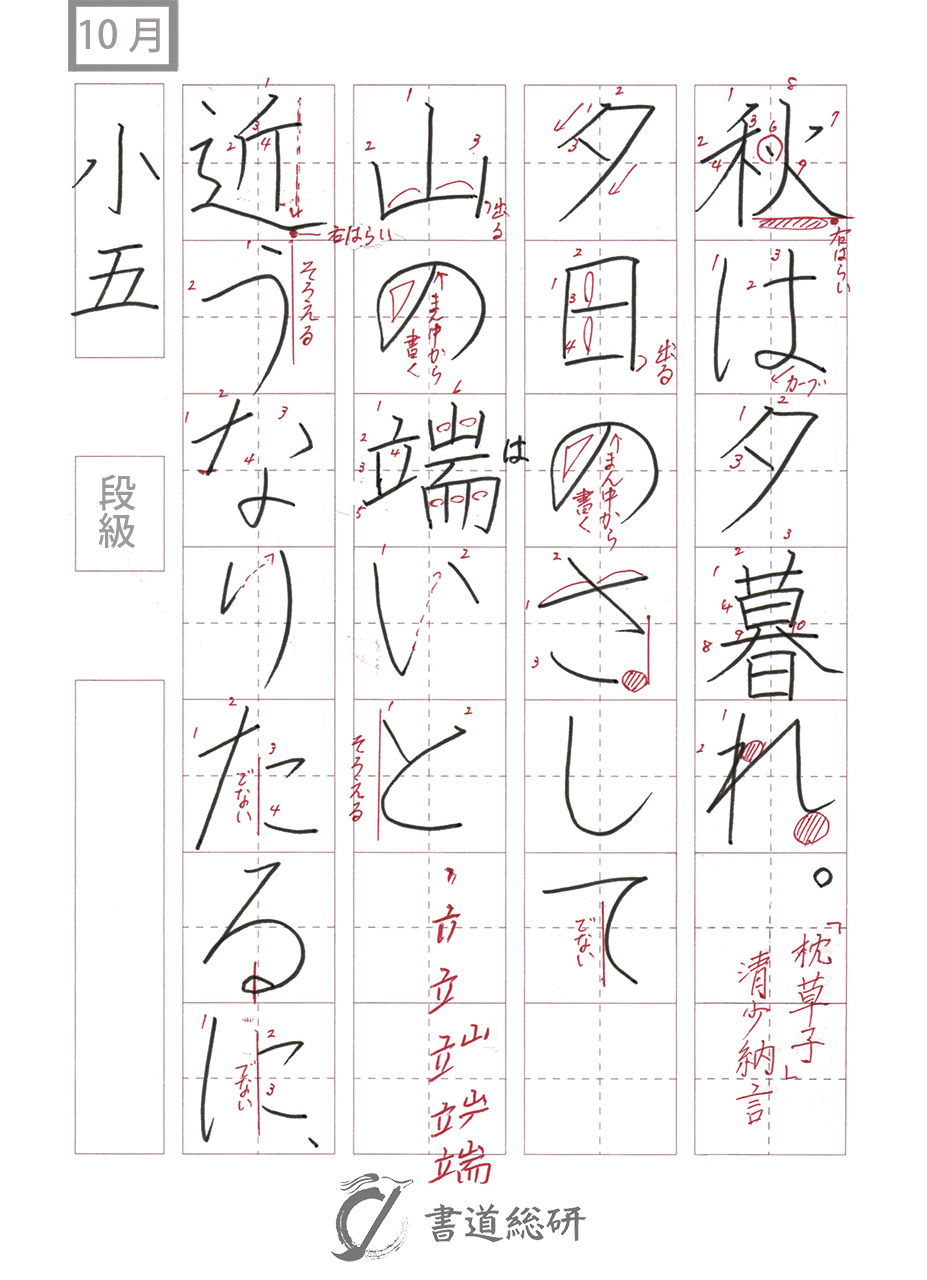 10月
秋は夕暮れ。
右はらい
カーブ
「枕草子」
清少納言
夕日のさして
出る
まん中から書く
でない
山の端いと
は
出る
まん中から書く
そろえる
立
端
近うなりたるに、
右はらい
そろえる
でない
でない
小五
段級
書道総研